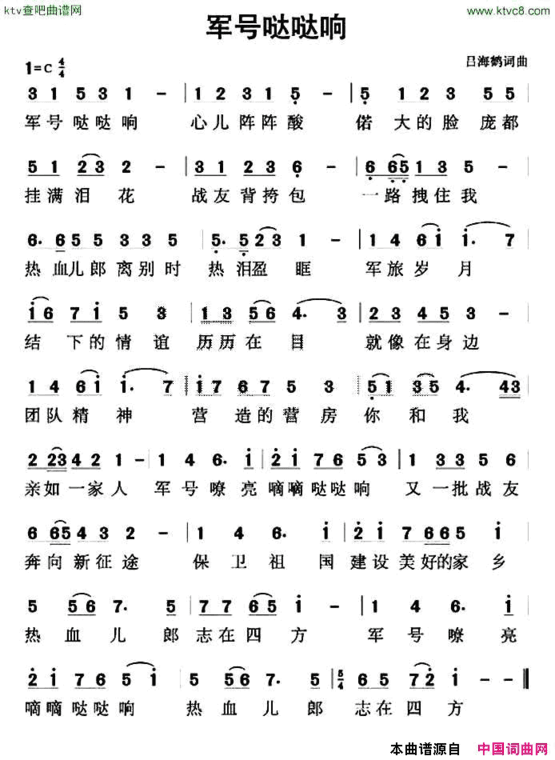 ktv查吧曲谱网
www.ktvc8.com
军号哒哒响
1=C 4/4
吕海鹤词曲
3 1 5 3 1 - | 1 2 3 1 5 - | 5 1 2 3 5
军号哒哒响 心儿阵阵酸 偌大的脸庞都
5 1 2 (23) - | 3 1 1 2 - | 6 (65) 1 3 5 -
挂满泪花 战友背挎包 一路拽住我
6. 6 5 5 3 3 5 | 5. 5 2 3 1 - | 1 4 6 i i. 7
热血儿郎离别时 热泪盈眶 军旅岁月
i 6 7 i 5 3 | 1 3 5 6 4. 3 | 2 3 4 5 3 -
结下的情谊 历历在目 就像在身边
1 4 6 i i. 7 | i 7 6 7 5 3 | 5 1 3 5 4. 43
团队精神 营造的营房你和我
2 23 4 2 1 - | 1 4 6. i | 2 i 7 6 5 3 | 1 3 3 5 6 -
亲如一家人 军号嘹亮嘀嘀哒哒响 又一批战友
6 65 4 3 2 - | 1 4 6. i | 2 i 7 6 6 5
奔向新征途 保卫祖国建设美好的家乡
5 5 6 7. 5 | 7 7 6 5 i - | 1 4 6. i
热血儿郎志在四方 军号嘹亮
2 i 7 6 7 5 i | i 5 6 7. 5 | 5/4 6 5 7 2 i - - ‖
嘀嘀哒哒响 热血儿郎志在四方
本曲谱源自 中国词曲网